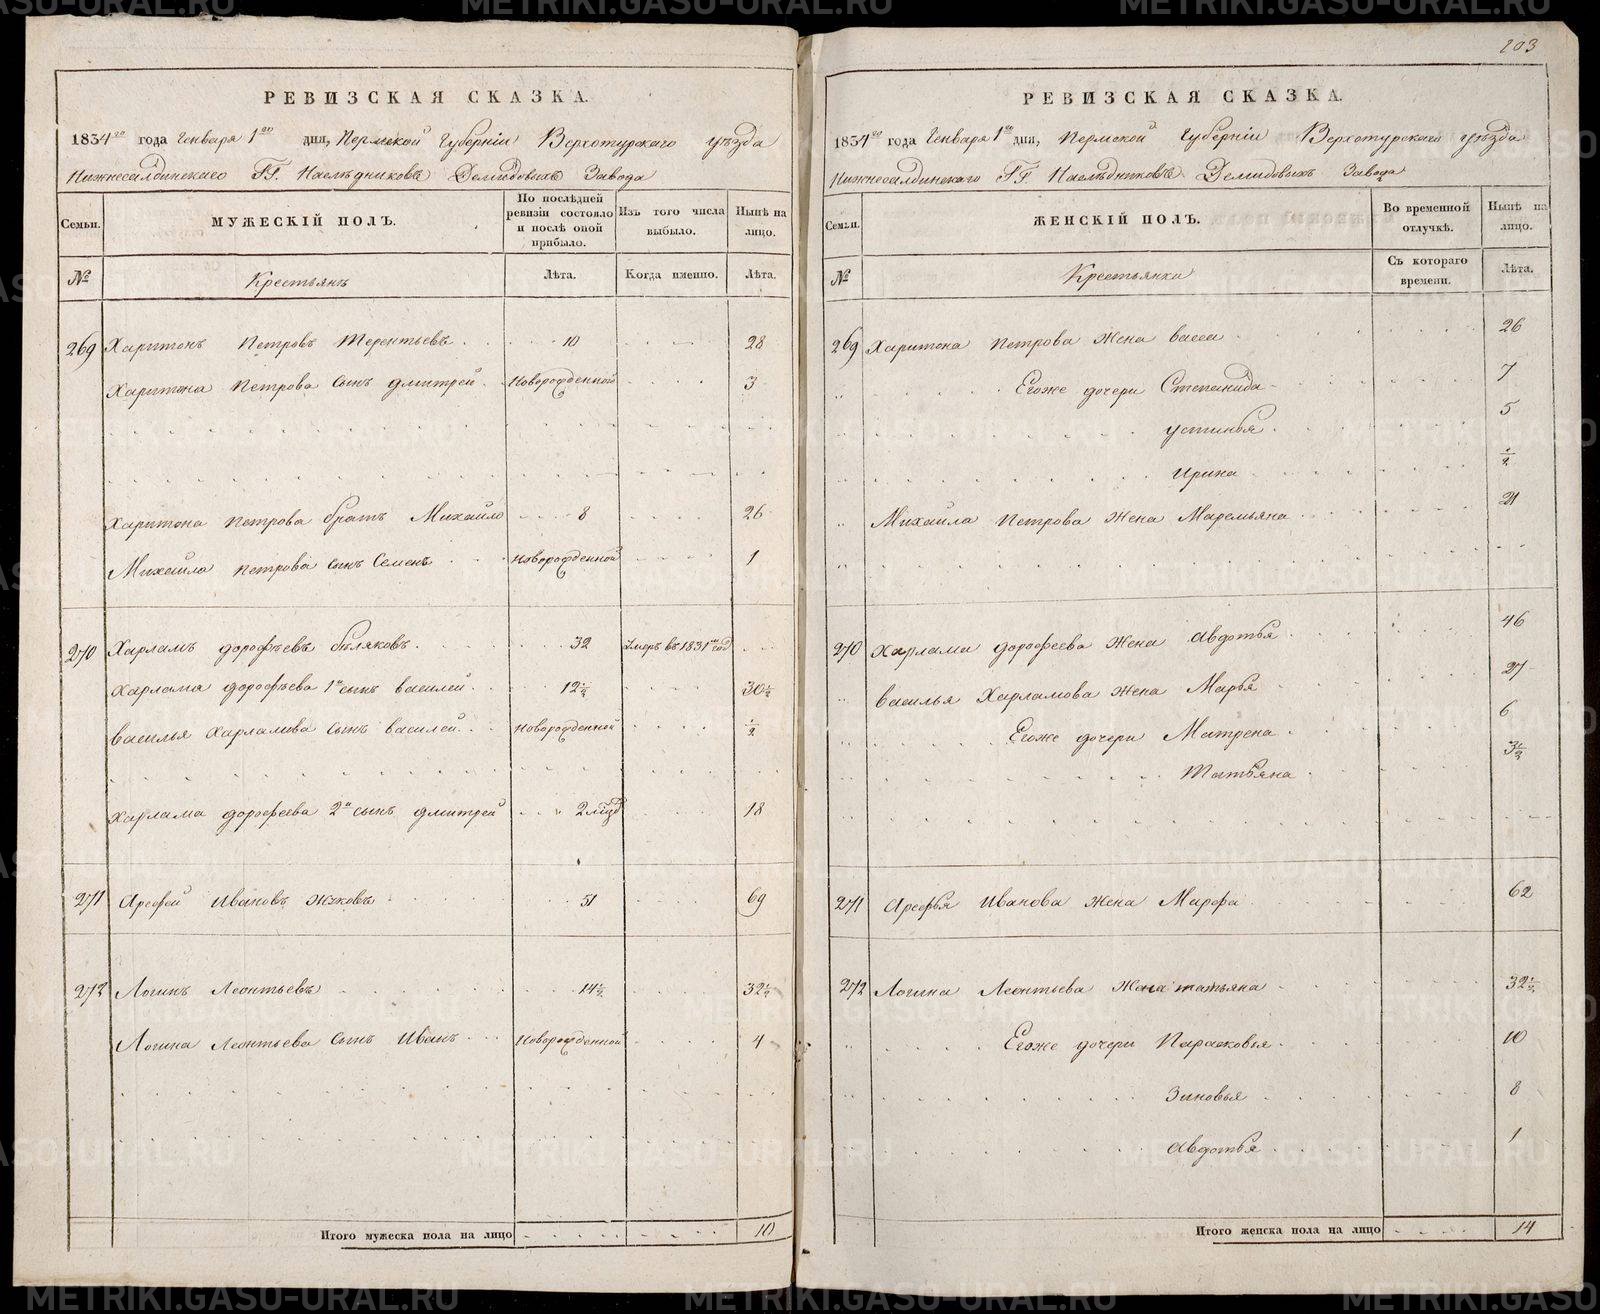 203
РЕВИЗСКАЯ СКАЗКА.
1834го года Генваря 1го дня, Пермской Губерніи Верхотурскаго уѣзда
Нижнесалдинскаго ГГ. Наслѣдниковъ Демидовыхъ Завода
Семьи. МУЖЕСКІЙ ПОЛЪ. По послѣдней ревизіи состояло и послѣ оной прибыло. Изъ того числа выбыло. Нынѣ на лицо.
№ Крестьянъ Лѣта. Когда именно. Лѣта.
269 Харитонъ Петровъ Терентьевъ 10 28
Харитона Петрова сынъ Дмитрей Новорожденной 3
Харитона Петрова братъ Михайло 8 26
Михайла Петрова сынъ Семенъ Новорожденной 1
270 Харламъ Дорофѣевъ Бѣляковъ 32 Умеръ въ 1831м год
Харлама Дорофѣева 1й сынъ Василей 12½ 30½
Василья Харламова сынъ Василей Новорожденной ½
Харлама Дорофеева 2й сынъ Дмитрей 18
271 Арефей Ивановъ 51 69
272 Логинъ Леонтьевъ 14½ 32½
Логина Леонтьева сынъ Иванъ Новорожденной 4
Итого мужеска пола на лицо 10
РЕВИЗСКАЯ СКАЗКА.
1834го года Генваря 1го дня, Пермской Губерніи Верхотурскаго уѣзда
Нижнесалдинскаго ГГ Наслѣдниковъ Демидовыхъ Завода
Семьи. ЖЕНСКІЙ ПОЛЪ. Во временной отлучкѣ. Нынѣ на лицо.
№ Крестьянки Съ котораго времени. Лѣта.
269 Харитона Петрова жена Васса 26
Егоже дочери Степанида 7
Устинья 5
Ирина ½
Михайла Петрова жена Маремьяна 21
270 Харлама Дорофеева жена Авдотья 46
Василья Харламова жена Марья 27
Егоже дочери Матрена 6
Татьяна 3½
271 Арефья Иванова жена Марфа 62
272 Логина Леонтьева жена Татьяна 32½
Егоже дочери Парасковья 10
Зиновья 8
Авдотья 1
Итого женска пола на лицо 14
METRIKI.GASO-URAL.RU